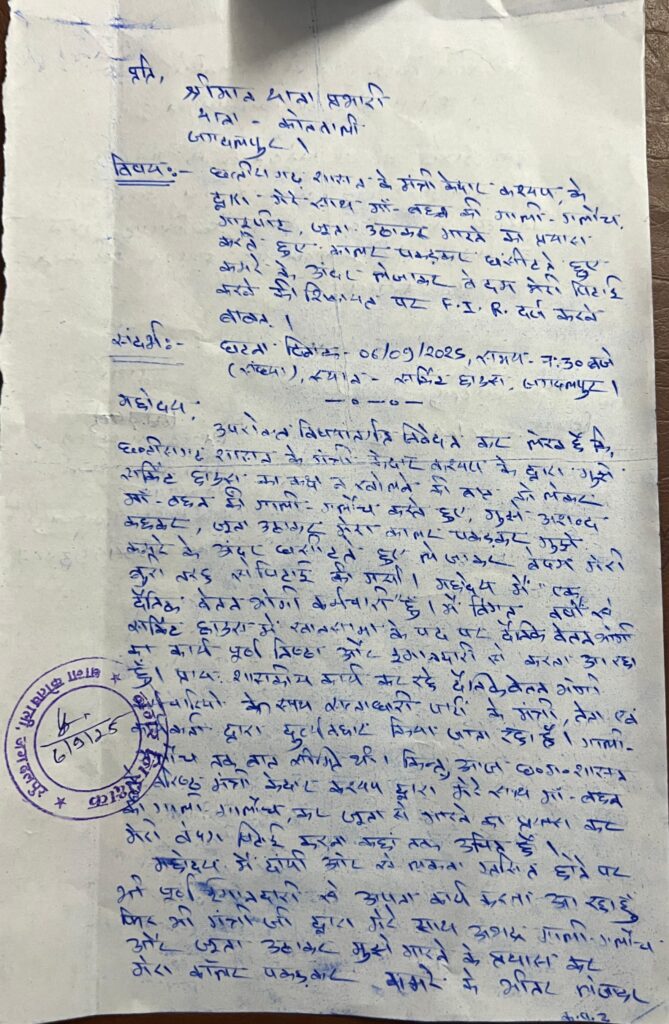 प्रति,
श्रीमान थाना प्रभारी
थाना - कोतवाली
जगदलपुर ।
विषय:- छत्तीसगढ़ शासन के मंत्री केदार कश्यप, के
द्वारा मेरे साथ माँ-बहन की गाली-गलौच,
मारपीट, जुता उठाकर मारने का प्रयास
करते हुए कालर पकड़कर घसीटते हुए
कमरे के अंदर लेजाकर बेदम मेरी पिटाई
करने की शिकायत पर F.I.R. दर्ज करने
बाबत ।
संदर्भ:- घटना दिनांक - 06/09/2025, समय - 7:30 बजे
(संध्या), स्थान - सर्किट हाउस, जगदलपुर।
—०—०—
महोदय,
उपरोक्त विषयान्तर्गत निवेदन कर लेख है कि,
छत्तीसगढ़ शासन के मंत्री केदार कश्यप के द्वारा मुझे
सर्किट हाउस का कक्ष न खोलने की बात को लेकर
माँ-बहन की गाली-गलौच करते हुए, मुझे
कहकर, जुता उठाकर मेरा कालर पकड़कर मुझे
कमरे के अंदर घसीटते हुए ले जाकर बेदम मेरी
बुरी तरह से पिटाई की गयी। महोदय में एक
दैनिक वेतन भोगी कर्मचारी हूँ। में विगत वर्षो से
सर्किट हाउस में खानसामा के पद पर दैनिक वेतन भोगी
का कार्य पूर्ण निष्ठा और ईमानदारी से करता आ रहा
हूँ। प्रायः शासकीय कार्य कर रहे दैनिक वेतन भोगी
के साथ सत्ताधारी पार्टी के मंत्री, नेता एवं
द्वारा दुर्व्यवहार किया जाता रहा है। गाली-
तक बात सीमित थी। किन्तु आज छ०ग० शासन
वरिष्ठ मंत्री केदार कश्यप द्वारा मेरे साथ माँ-बहन
की गाली गलौच, कर जुता से मारने का प्रयास कर
मेरी बेदम पिटाई करना कहां तक उचित है।
महोदय में दांयी ओर से लकवा ग्रसित होने पर
भी पूर्ण ईमानदारी से अपना कार्य करता आ रहा हूँ
फिर भी मंत्री जी द्वारा मेरे साथ अभद्र गाली-गलौच
और जुता उठाकर मुझे मारने के प्रयास कर
मेरा कॉलर पकड़कर कमरे के भीतर लेजाकर
थाना कोतवाली, जगद
6/9/25